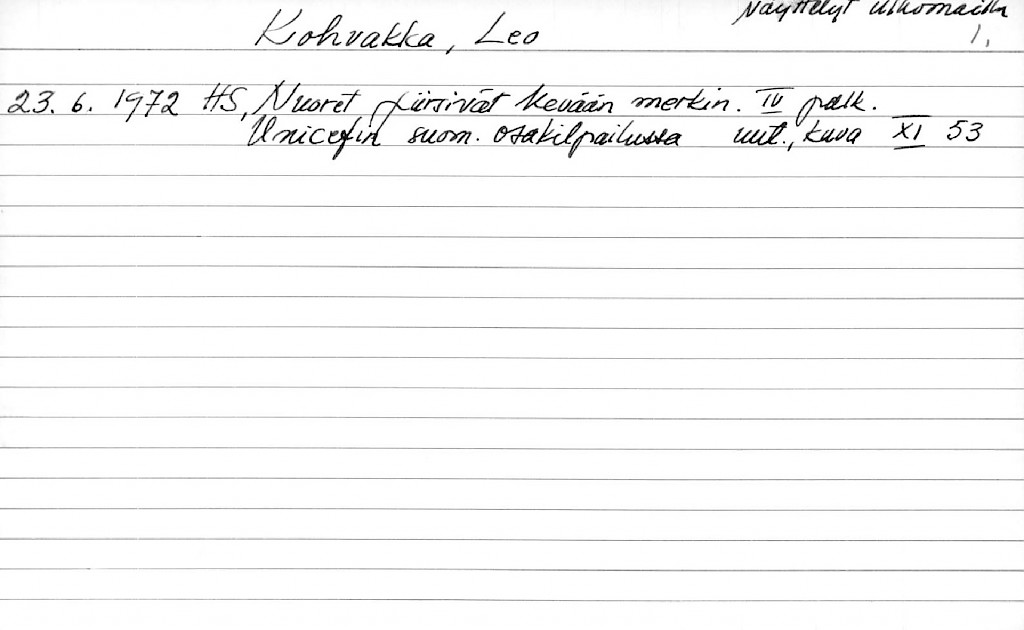 Näyttelyt ulkomailla
Kohvakka, Leo 1.
23. 6. 1972 HS, Nuoret piirsivät kevään merkin. IV palk.
Unicefin suom. osakilpailussa uut., kuva XI 53